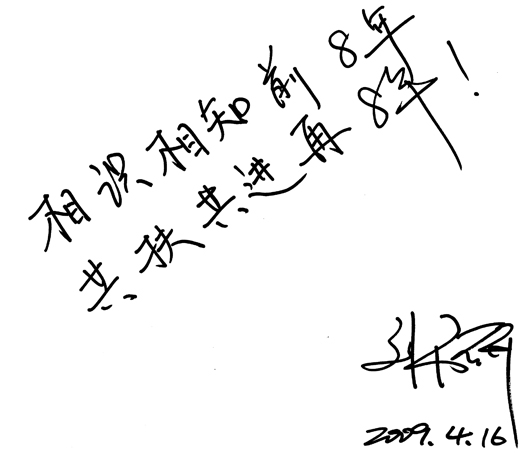 相识相知前8年
共扶共进再8年!
2009.4.16